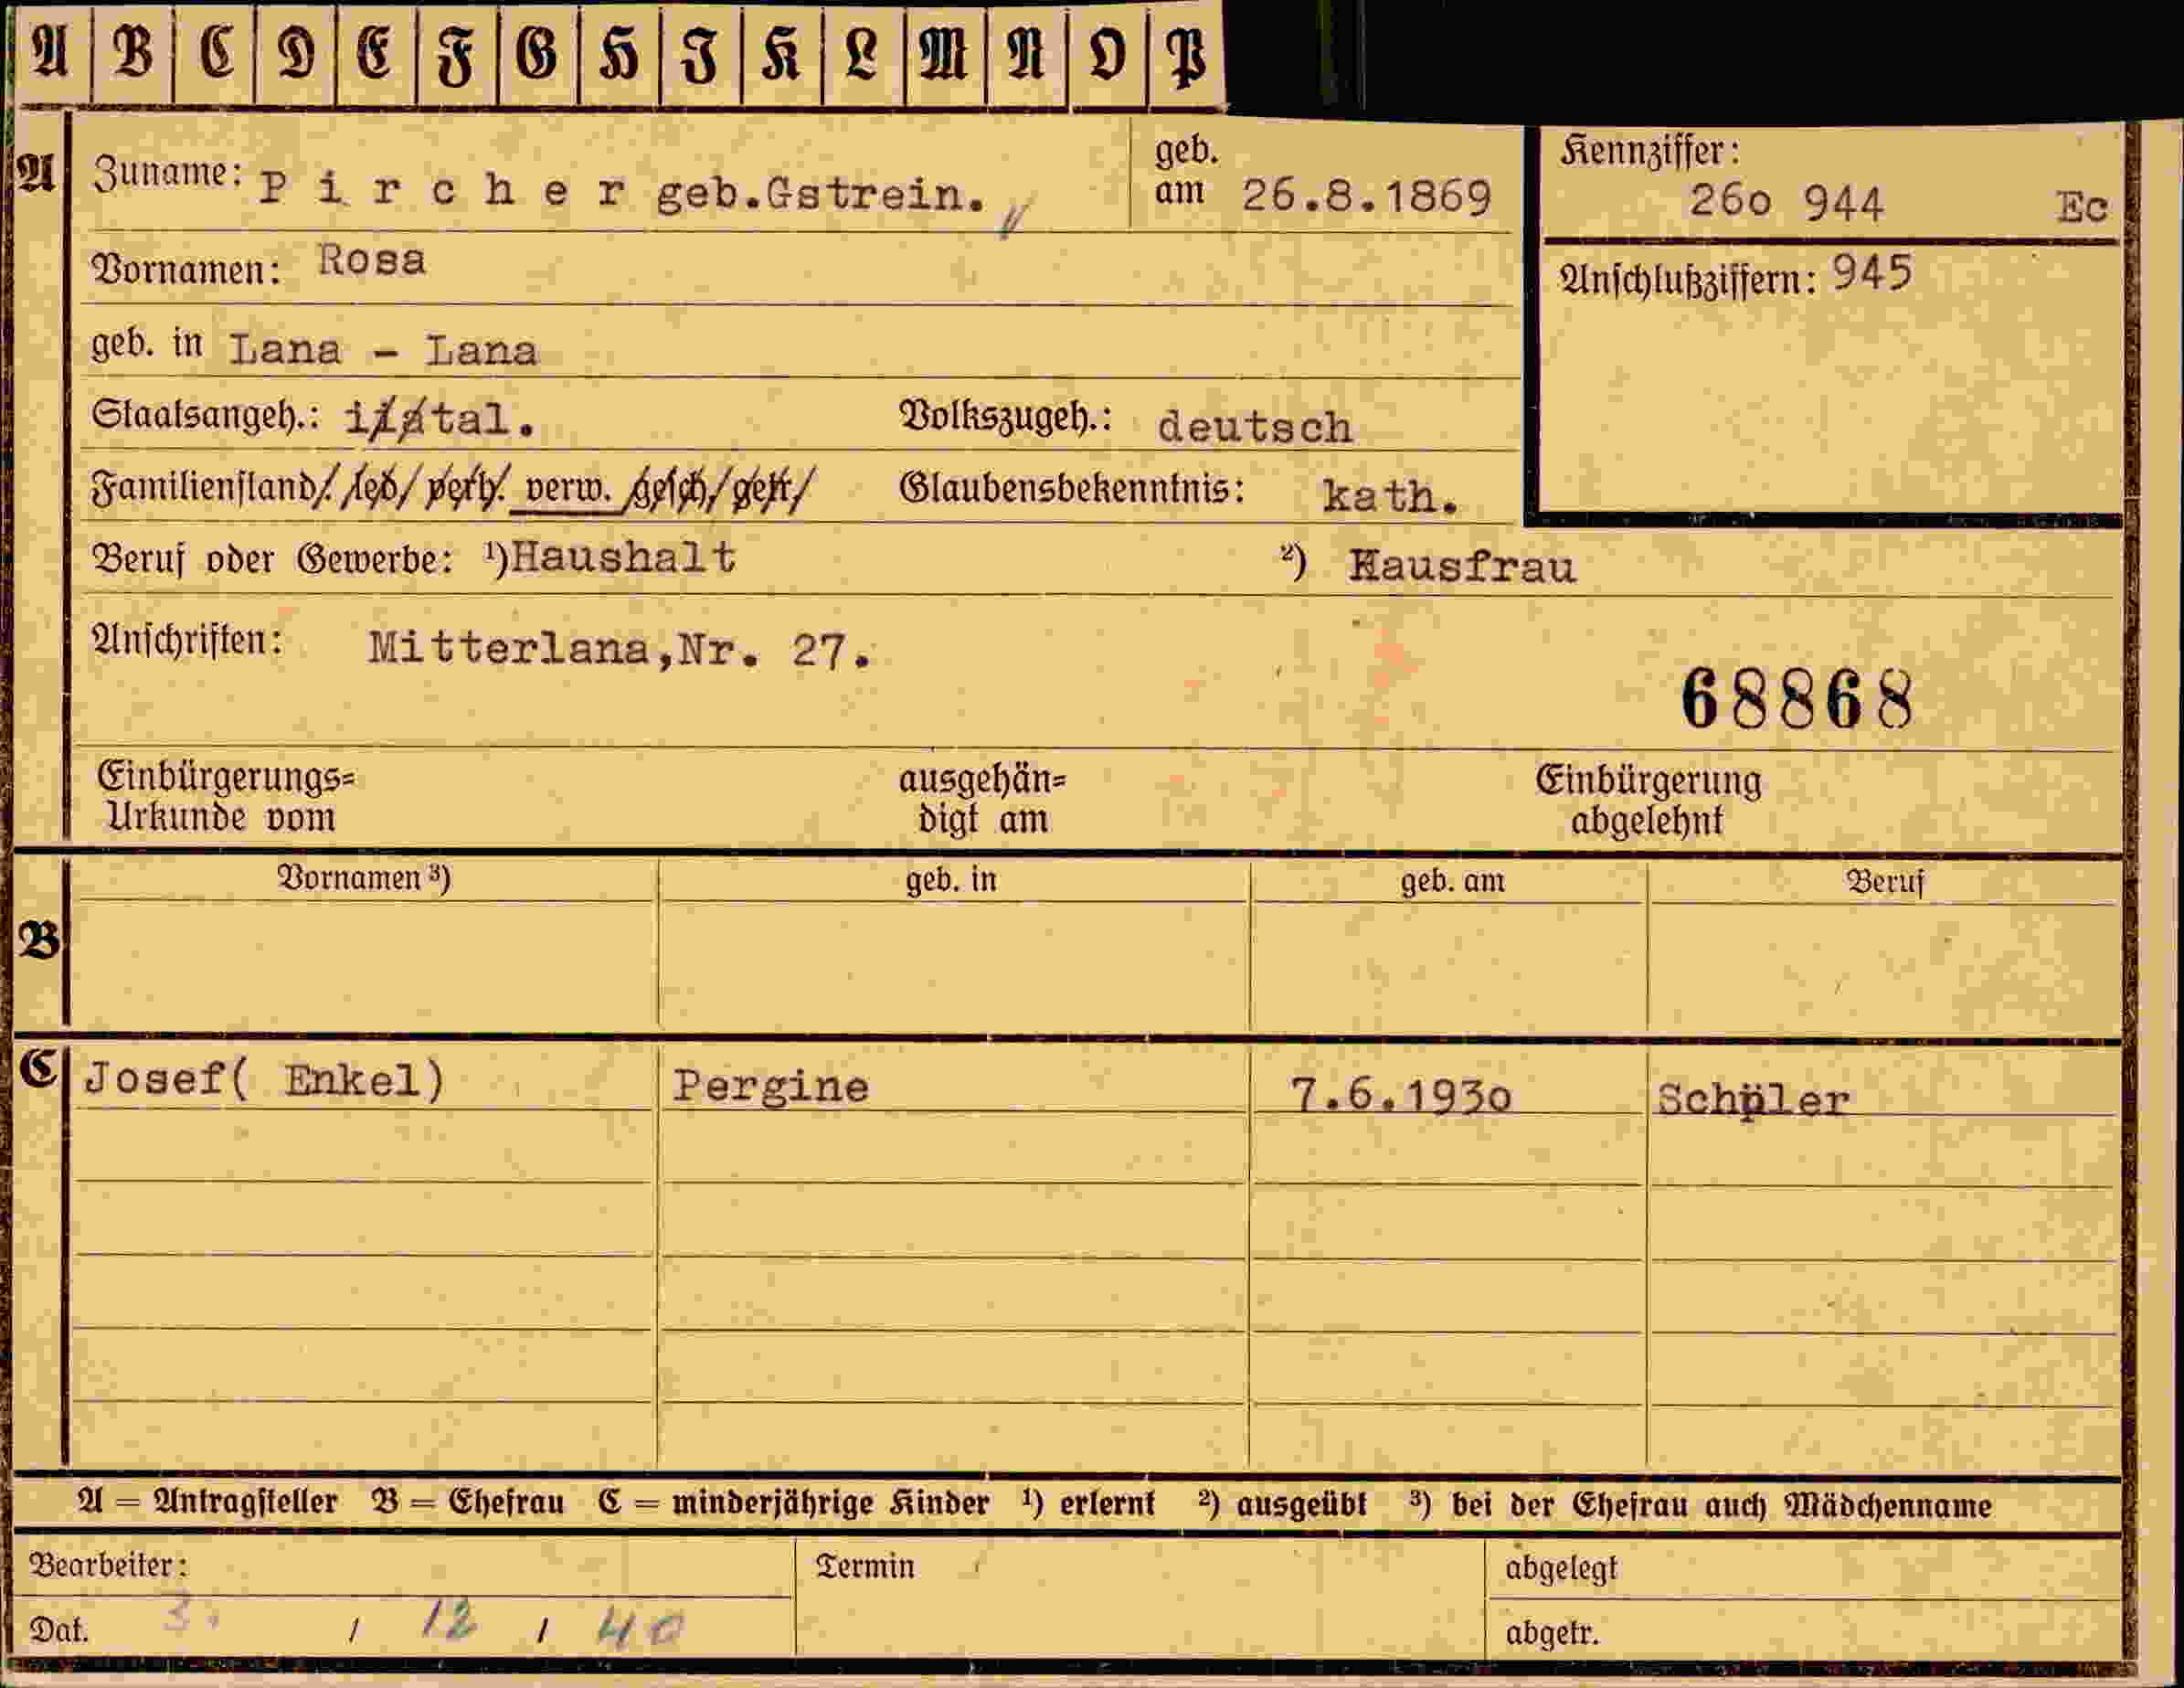 A B C D E F G H I K L M N O P
A Zuname: P i r c h e r geb.Gstrein. geb. am 26.8.1869 Kennziffer: 26o 944 Ec
Vornamen: Rosa Anschlußziffern: 945
geb. in Lana - Lana
Staatsangeh.: ital. Volkszugeh.: deutsch
Familienstand: led. verh. verw. gesch. getr. Glaubensbekenntnis: kath.
Beruf oder Gewerbe: ¹)Haushalt ²) Hausfrau
Anschriften: Mitterlana,Nr. 27.
68868
Einbürgerungs=
Urkunde vom
ausgehän=
digt am
Einbürgerung
abgelehnt
B Vornamen ³) geb. in geb. am Beruf
C Josef( Enkel) Pergine 7.6.193o Schüler
A = Antragsteller B = Ehefrau C = minderjährige Kinder ¹) erlernt ²) ausgeübt ³) bei der Ehefrau auch Mädchenname
Bearbeiter: Termin abgelegt
Dat. 3. / 12 / 40 abgetr.